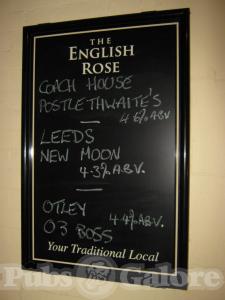 THE
ENGLISH
ROSE
COACH HOUSE
POSTLETHWAITE'S
4.6% A.B.V.
LEEDS
NEW MOON
4.3% A.B.V.
OTLEY
4.4% A.B.V.
03 BOSS
Your Traditional Local
Pubs Galore